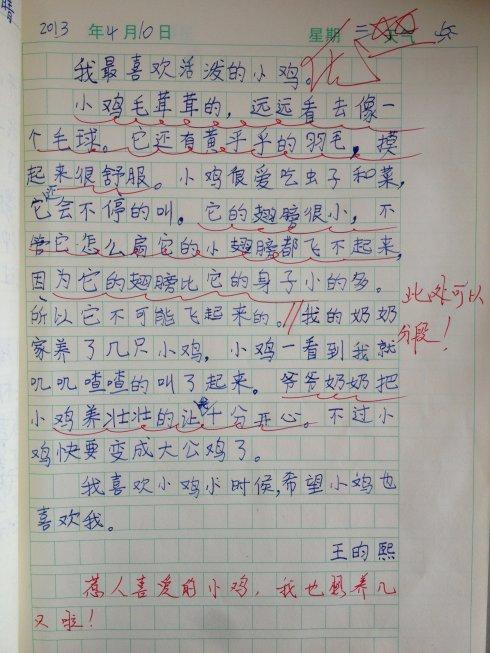 2013 年 4 月 10 日 星期 三
我最喜欢活泼的小鸡。
小鸡毛茸茸的，远远看去像一
个毛球。它还有黄乎乎的羽毛，摸
起来很舒服。小鸡很爱吃虫子和菜，
它还会不停的叫。它的翅膀很小，不
管它怎么扇它的小翅膀都飞不起来，
因为它的翅膀比它的身子小的多。
所以它不可能飞起来的。//我的奶奶
此处可以
分段！
家养了几只小鸡，小鸡一看到我就
叽叽喳喳的叫了起来。爷爷奶奶把
小鸡养壮壮的让我十分开心。不过小
鸡快要变成大公鸡了。
我喜欢小鸡小时候，希望小鸡也
喜欢我。
王昀熙
惹人喜爱的小鸡，我也想养几
只啦！